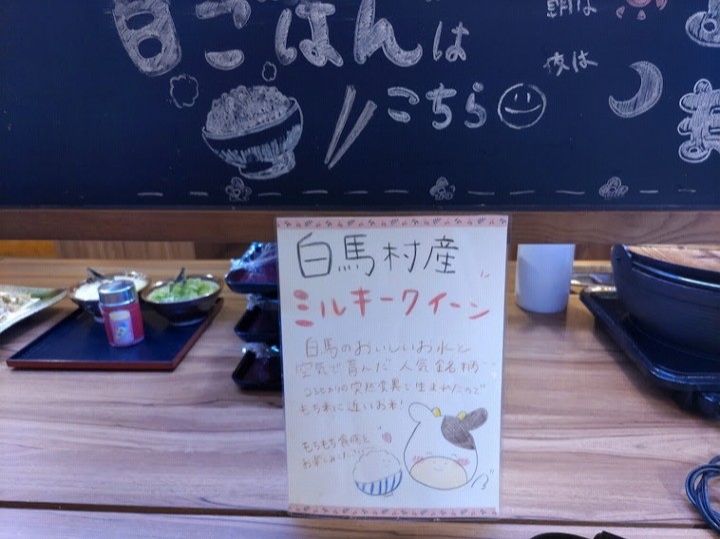 白ごはんは
こちら
朝は
夜は
白馬村産
ミルキークイーン
白馬のおいしいお水と
空気で育んだ人気銘柄…
コシヒカリの突然変異で生まれたので
もち米に近いお米!
もちもち食感を
お楽しみください